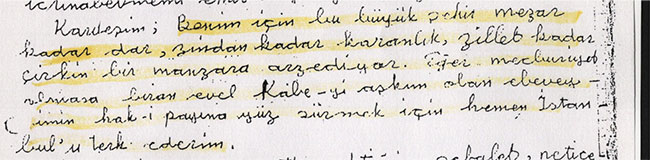 Kardeşim; Benim için bu büyük şehir mezar
kadar dar, zindan kadar karanlık, zillet kadar
çirkin bir manzara arzediyor. Eğer mecburiyet
olmasa biran evel Kâbe-yi aşkım olan ebevey-
imin hak-i payına yüz sürmek için hemen İstan
bul'u terk ederim.
sebalet, netice